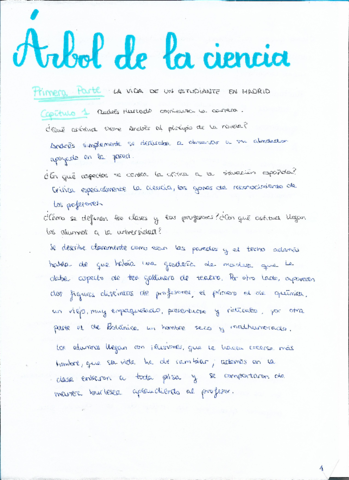 Árbol de la ciencia
Primera Parte LA VIDA DE UN ESTUDIANTE EN MADRID
Capítulo 1: Andrés Hurtado comienza la carrera.
¿Qué actitud tiene Andrés al principio de la novela?
Andrés simplemente se dedicaba a observar a su alrededor
apoyado en la pared.
¿En qué aspectos se centra la crítica a la situación española?
Critica especialmente la ciencia, las ganas del reconocimiento de
los profesores.
¿Cómo se definen las clases y sus profesores? ¿Con qué actitud llegan
los alumnos a la universidad?
Se describe claramente como eran las paredes y el techo además
habla de que había una gradería de madera que le
daba aspecto de ser gallinero de teatro. Por otro lado, aparecen
dos figuras distintas de profesores, el primero es de química,
un viejo, muy empaquetado, presentuoso y ridículo, por otra
parte el de Botánica, un hombre serio y malhumorado.
Los alumnos llegan con ilusiones, que se hacía creerse más
hombre, que su vida ha de cambiar, además en la
clase entraron a toda prisa y se comportaron de
manera burlesca aplaudiendo al profesor.
1